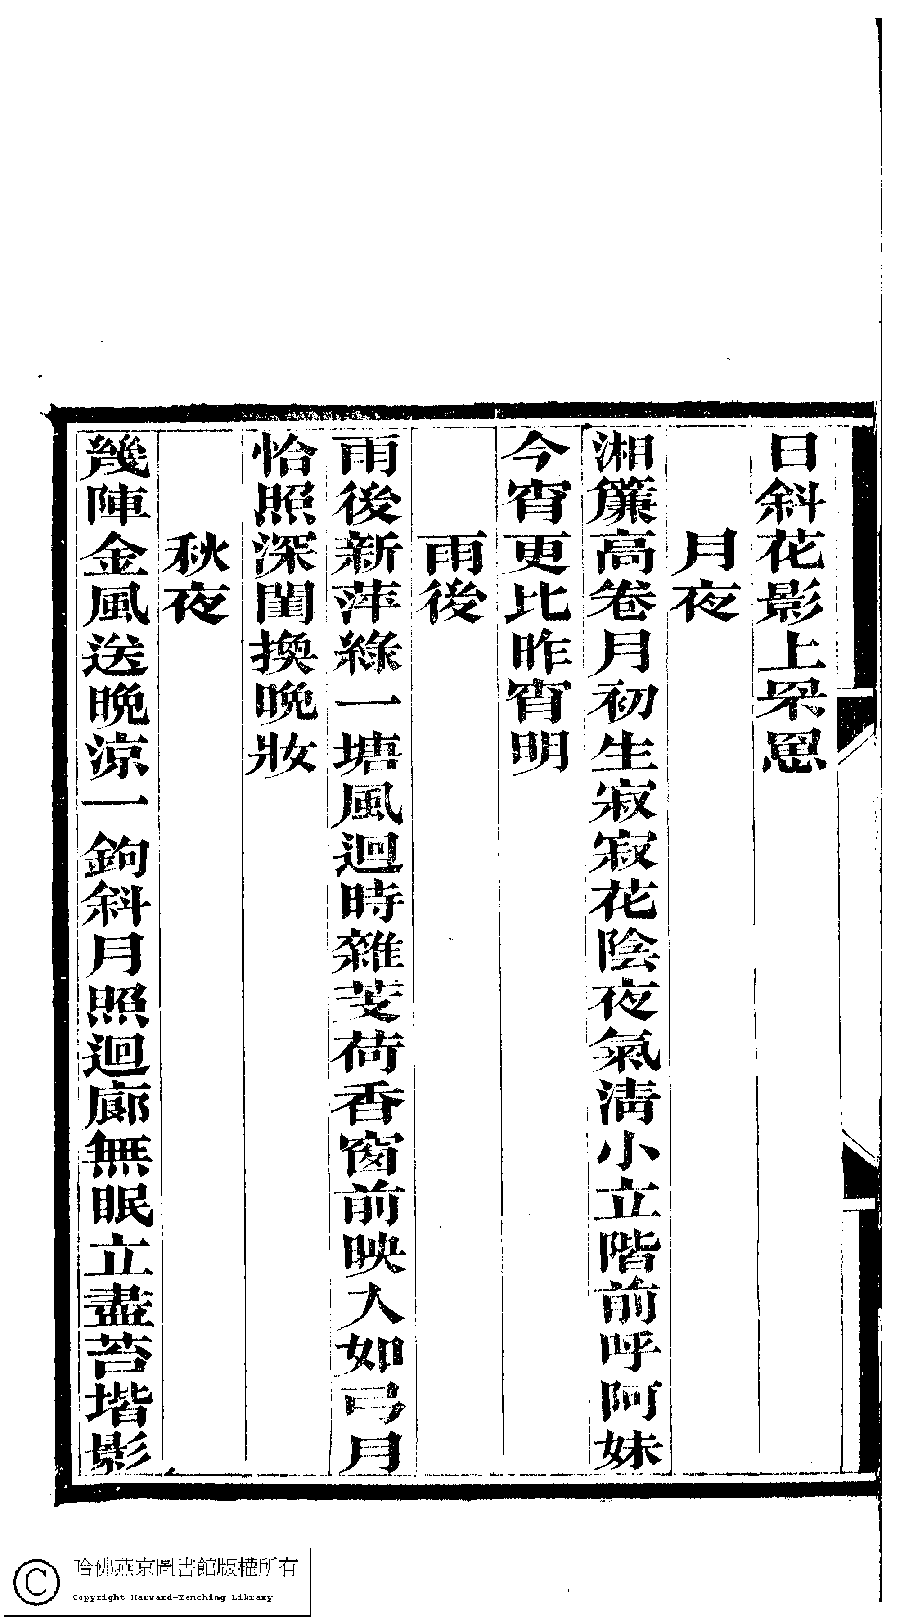 日斜花影上罘罳
月夜
湘簾高卷月初生寂寂花陰夜氣淸小立階前呼阿妹
今宵更比昨宵明
雨後
雨後新萍綠一塘風迴時雜芰荷香窗前映人如弓月
恰照深閨換晚妝
秋夜
幾陣金風送晚涼一鉤斜月照迴廊無眠立盡苔堦影
哈佛燕京圖書館版權所有
Copyright Harvard-Yenching Library